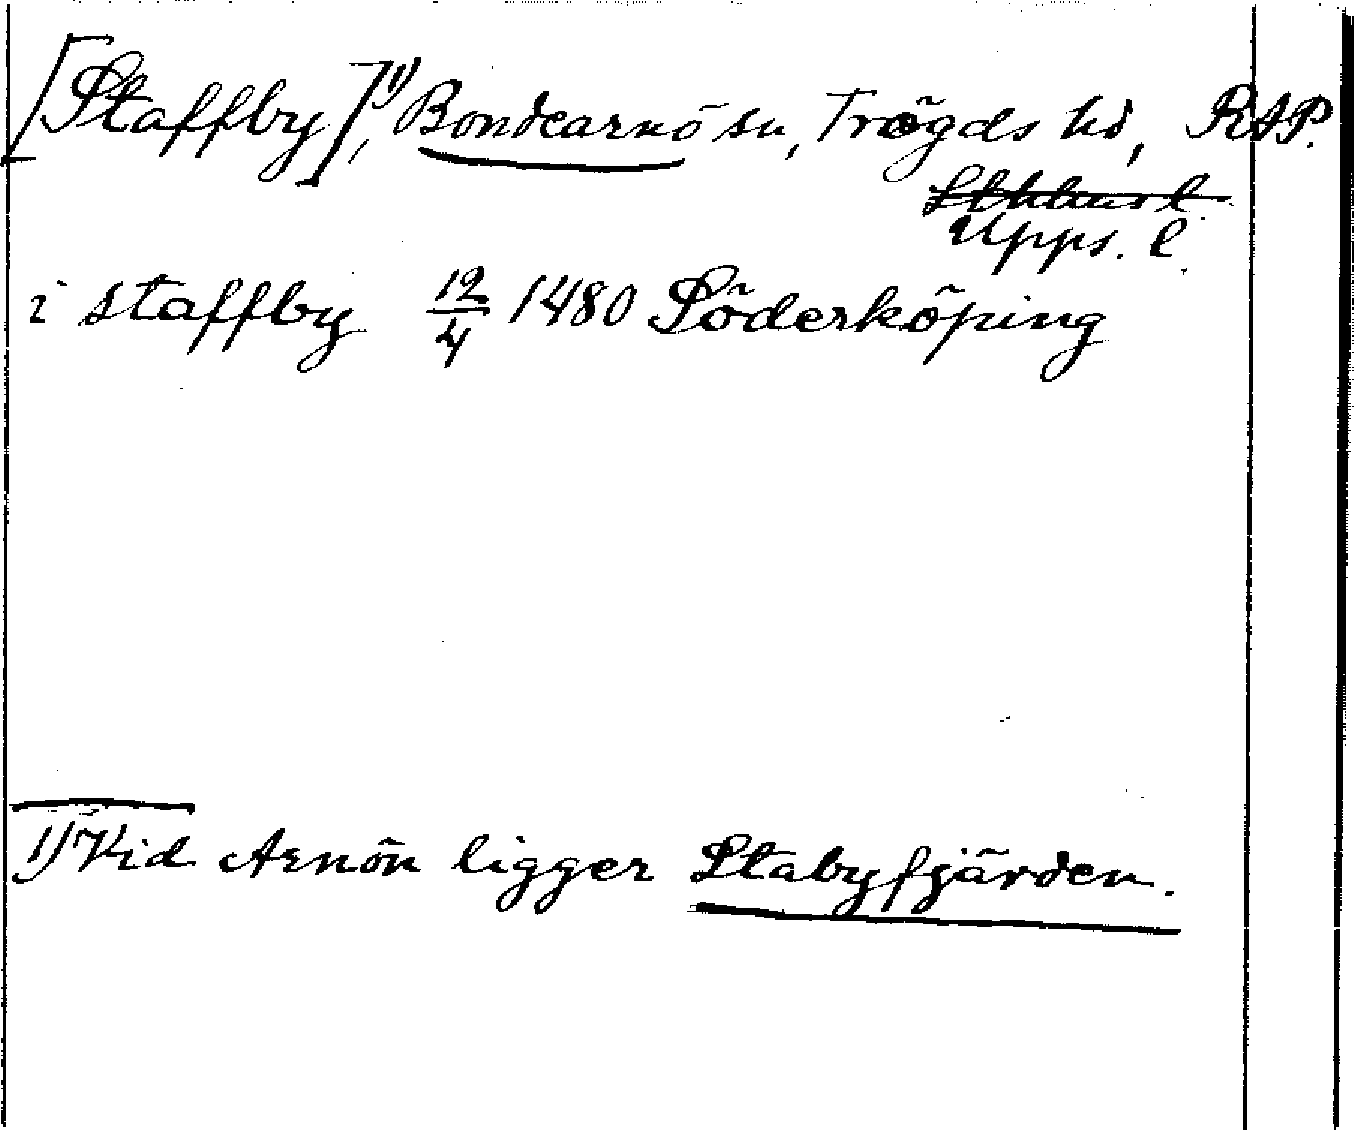 [Staffby]¹⁾, Bondearnö sn, Trögds hd, RAP.
Sthlms l.
Upps. l.
i staffby 12/4 1480 Söderköping
1) Vid Arnön ligger Stabyfjärden.